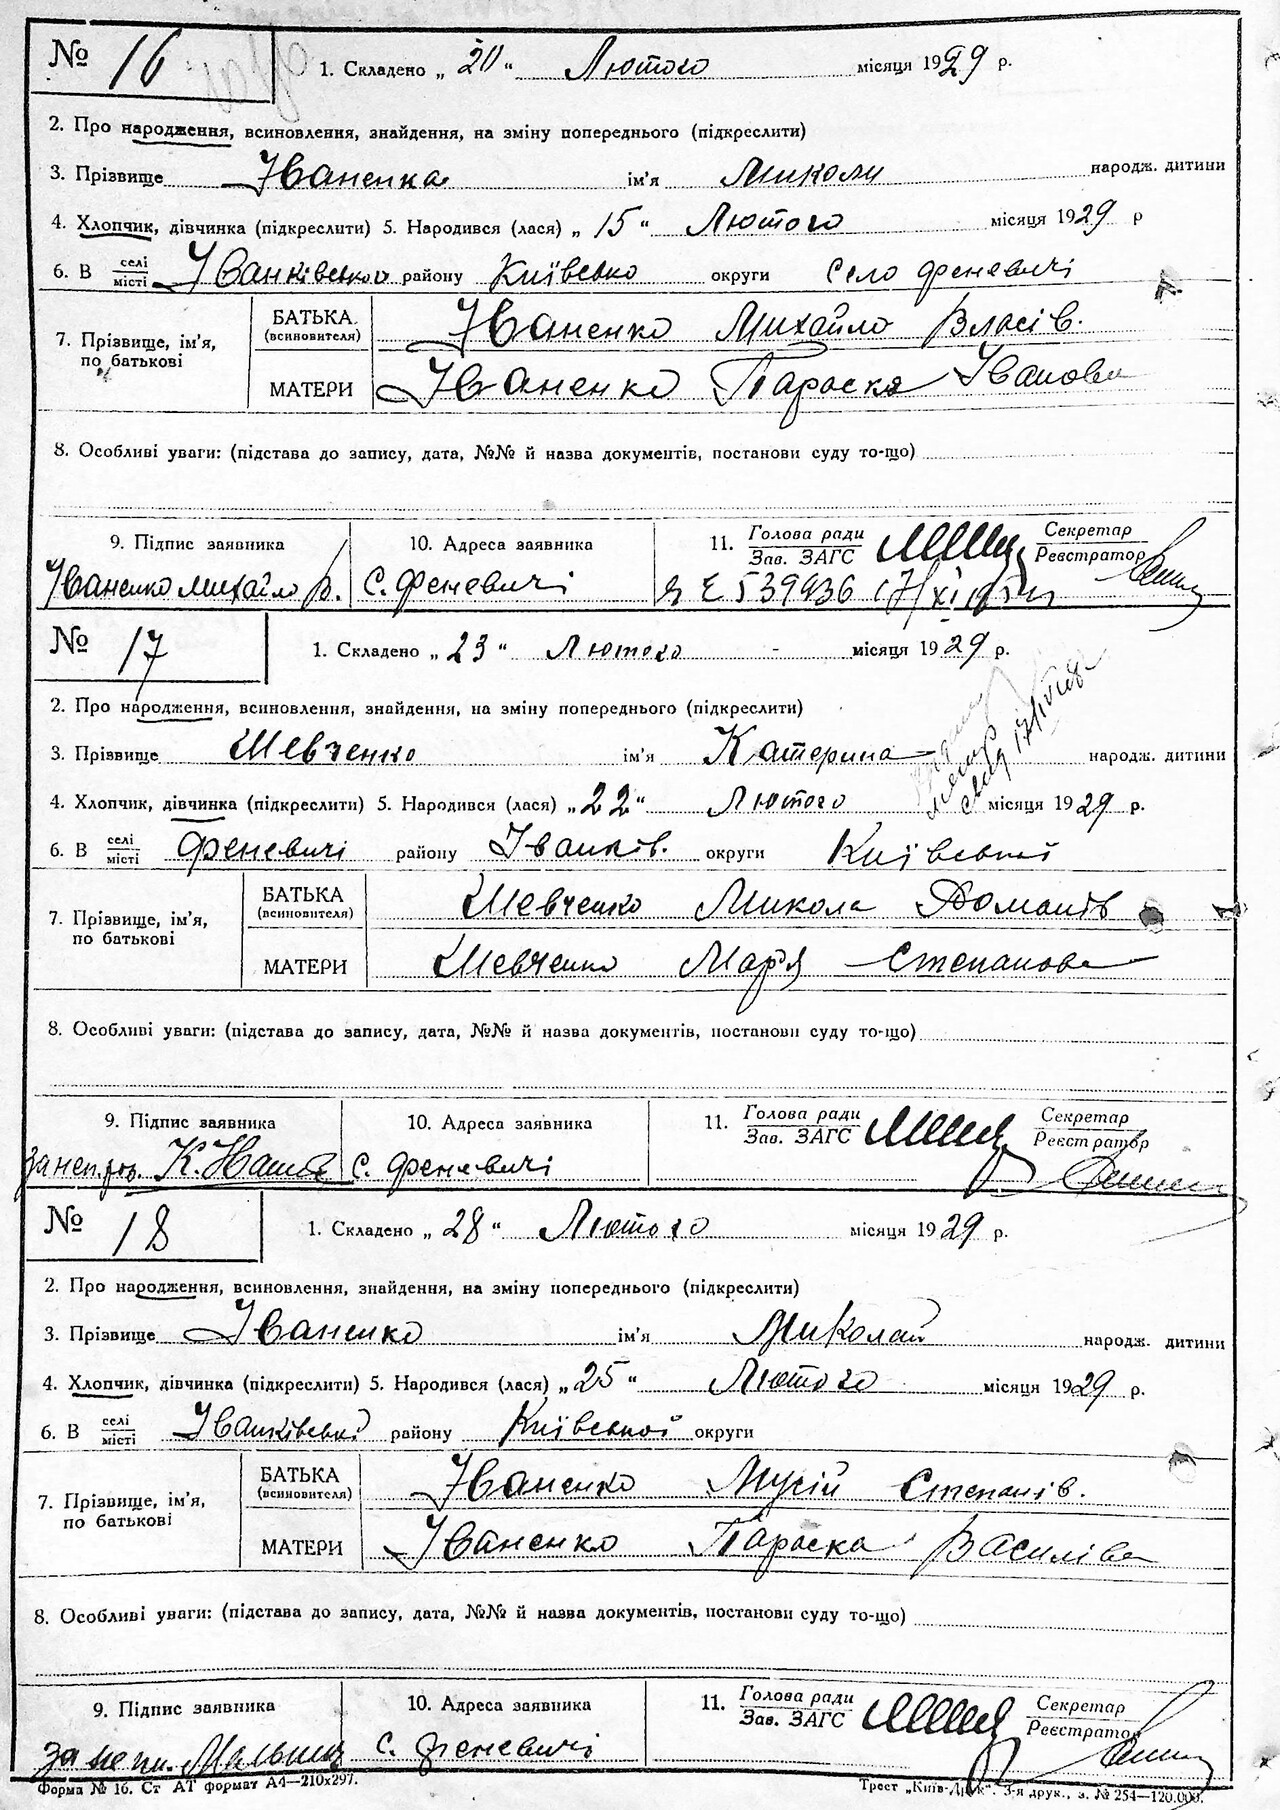 № 16 1. Складено „ 20 “ Лютого місяця 1929 р.
2. Про народження, всиновлення, знайдення, на зміну попереднього (підкреслити)
3. Прізвище Іваненка ім'я Миколи народж. дитини
4. Хлопчик, дівчинка (підкреслити) 5. Народився (лася) „ 15 “ Лютого місяця 1929 р
6. В селі/місті Іванківсько району Київсько округи село Феневичі
7. Прізвище, ім'я, по батькові
БАТЬКА (всиновителя) Іваненко Михайло Власів.
МАТЕРИ Іваненко Параска Іванова
8. Особливі уваги: (підстава до запису, дата, №№ й назва документів, постанови суду то-що)
9. Підпис заявника 10. Адреса заявника 11. Голова ради/Зав. ЗАГС Секретар/Реєстратор
Іваненко Михайло В. С. Феневичі 539936
№ 17 1. Складено „ 23 “ Лютого - місяця 1929 р.
2. Про народження, всиновлення, знайдення, на зміну попереднього (підкреслити)
3. Прізвище Шевченко ім'я Катерина народж. дитини
4. Хлопчик, дівчинка (підкреслити) 5. Народився (лася) „ 22 “ Лютого місяця 1929 р.
6. В селі/місті Феневичі району Іванків. округи Київської
7. Прізвище, ім'я, по батькові
БАТЬКА (всиновителя) Шевченко Микола Доманів
МАТЕРИ Шевченко Мар'я Степанова
8. Особливі уваги: (підстава до запису, дата, №№ й назва документів, постанови суду то-що)
9. Підпис заявника 10. Адреса заявника 11. Голова ради/Зав. ЗАГС Секретар/Реєстратор
за неп. К. С. Феневичі
№ 18 1. Складено „ 28 “ Лютого місяця 1929 р.
2. Про народження, всиновлення, знайдення, на зміну попереднього (підкреслити)
3. Прізвище Іваненко ім'я Миколай народж. дитини
4. Хлопчик, дівчинка (підкреслити) 5. Народився (лася) „ 25 “ Лютого місяця 1929 р.
6. В селі/місті Іванківської району Київської округи
7. Прізвище, ім'я, по батькові
БАТЬКА (всиновителя) Іваненко Мусій Степанів.
МАТЕРИ Іваненко Параска Василіва
8. Особливі уваги: (підстава до запису, дата, №№ й назва документів, постанови суду то-що)
9. Підпис заявника 10. Адреса заявника 11. Голова ради/Зав. ЗАГС Секретар/Реєстратор
за неп. С. Феневичі
Форма № 16. Ст АТ формат А4—210х297. Трест „Київ-Друк“. 3-я друк., з. № 254—120.000.